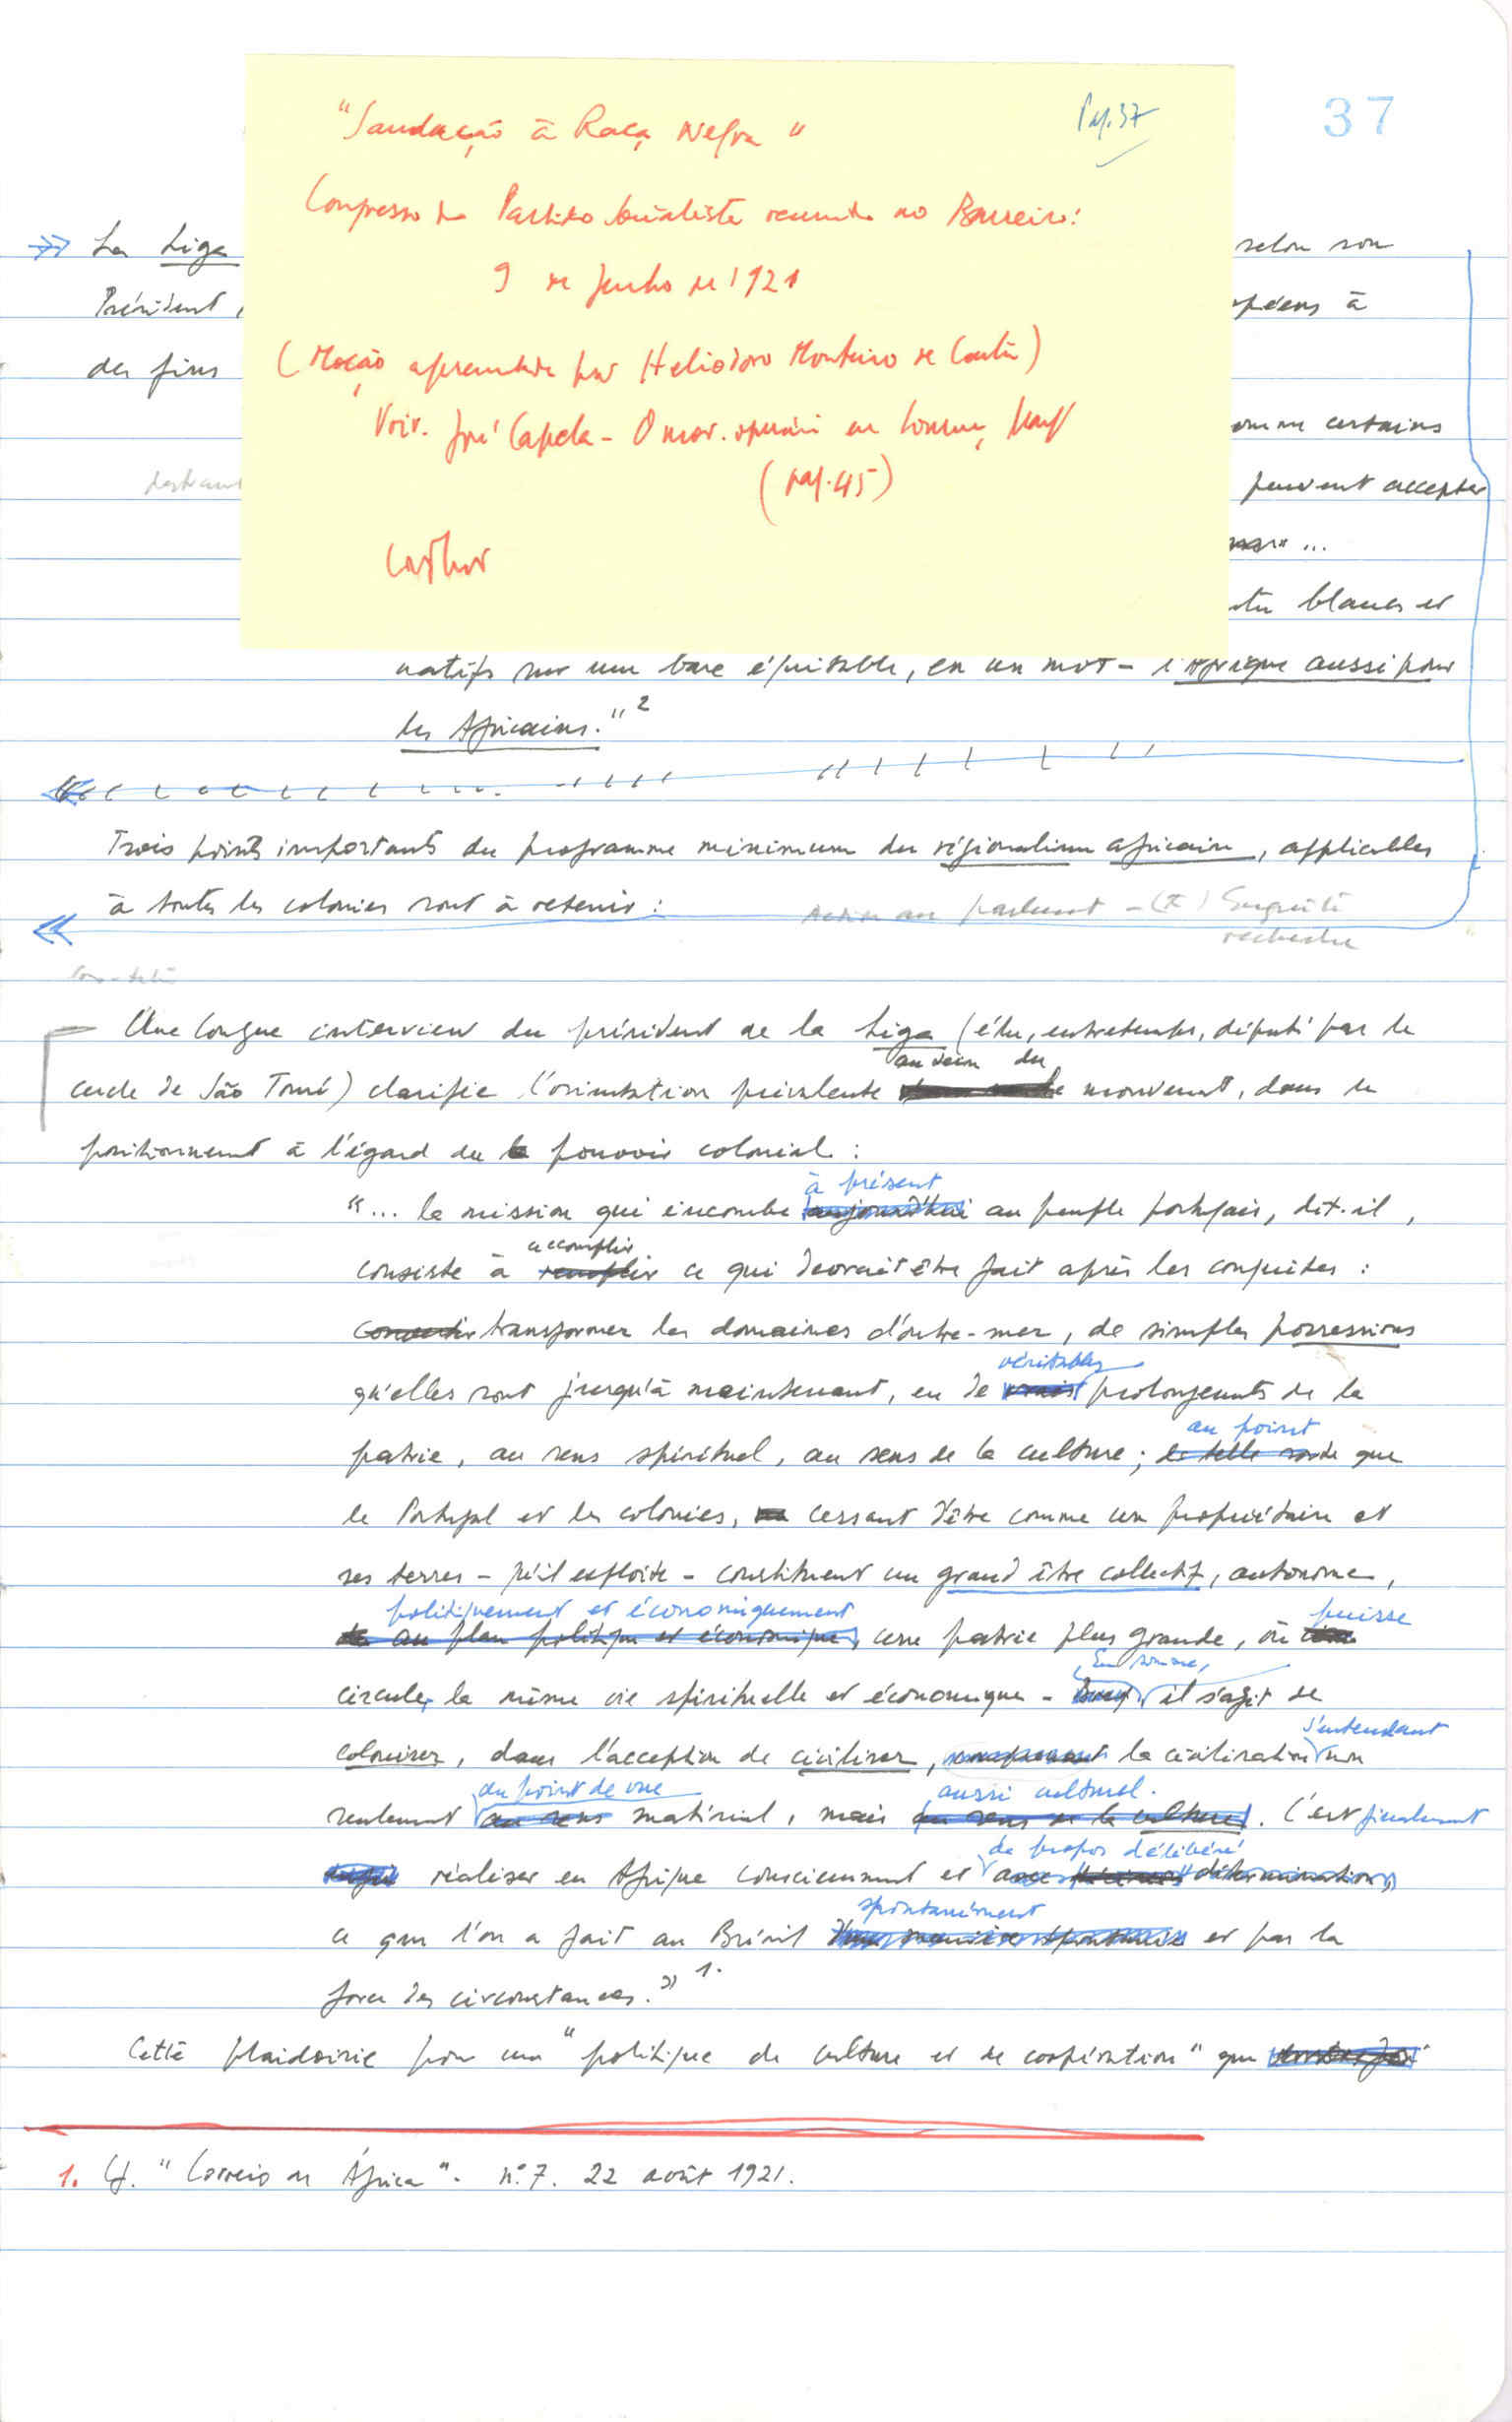 37
"Saudação à Raça Negra"
Pag. 37
Congresso do Partido Socialista reunido no Barreiro:
9 de Junho de 1921
(Moção apresentada por Heliodoro Monteiro de Castro)
Voir. José Capela - O mov. operário em Lourenço Marq
(pag. 45)
La Liga
selon son
Président,
opéens à
des fins
omme certains
peuvent accepter
blancs et
natifs sur une base équitable, en un mot - l'Afrique aussi pour
les Africains."2
Trois points importants du programme minimum du régionalisme africain, applicables
à toutes les colonies sont à retenir:
Action au parlement - (π) Enquête
recherche
Une longue interview du président de la Liga (élu, entretemps, député par le
cercle de São Tomé) clarifie l'orientation prévalente au sein du mouvement, dans le
positionnement à l'égard du pouvoir colonial:
"... la mission qui incombe aujourd'hui à présent au peuple portugais, dit-il,
consiste à remplir accomplir ce qui devrait être fait après les conquêtes:
convertir transformer les domaines d'outre-mer, de simples possessions
qu'elles sont jusqu'à maintenant, en de vrais véritables prolongements de la
patrie, au sens spirituel, au sens de la culture; de telle sorte au point que
le Portugal et les colonies, cessant d'être comme un propriétaire et
ses terres - qu'il exploite - constituent un grand être collectif, autonome,
au plan politique et économique, politiquement et économiquement une patrie plus grande, où puisse
circuler la même vie spirituelle et économique - Bref, En somme, il s'agit de
coloniser, dans l'acception de civiliser, la civilisation s'entendant non
seulement au sens du point de vue matériel, mais au sens de la culture aussi culturel. C'est finalement
réaliser en Afrique consciemment et avec détermination, de propos délibéré
ce que l'on a fait au Brésil d'une manière spontanée spontanément et par la
force des circonstances." 1.
Cette plaidoirie pour une "politique de culture et de coopération" que
1. Cf. "Correio de África". nº 7. 22 août 1921.